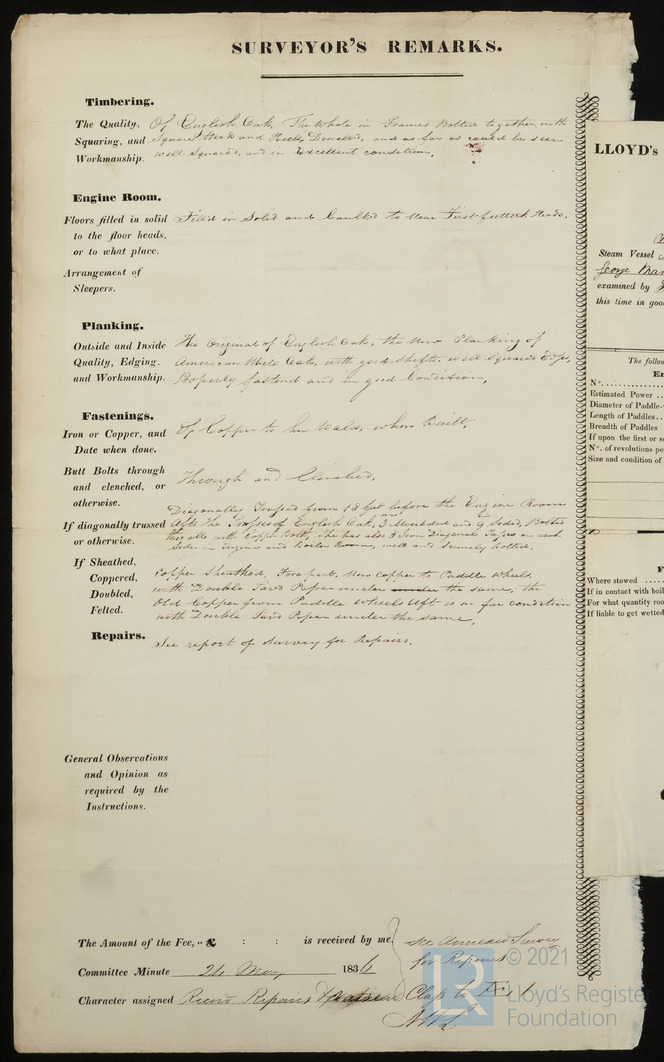 SURVEYOR'S REMARKS.
Timbering.
The Quality, Of English Oak, The Whole in Frames Bolted together with
Squaring, and Square Head and Heels, and as far as could be seen
Workmanship. well Squared, and in Excellent condition,
Engine Room.
Floors filled in solid Filled in Solid and Caulked to First futtock Heads,
to the floor heads,
or to what place.
Arrangement of
Sleepers.
Planking.
Outside and Inside The Original of English Oak, the New Planking of
Quality, Edging, American White Oak, with good Shifts, well Squared Edges,
and Workmanship. Properly fastened and in good Condition,
Fastenings.
Iron or Copper, and Of Copper to her Wales, when Built,
Date when done.
Butt Bolts through Through and Clenched,
and clenched, or
otherwise.
Diagonally from 18 feet before the Engine Room
If diagonally trussed Aft, The of English Oak, 3 Moulded and 9 Sided, Bolted
or otherwise. with Copper Bolts, She has also 3 Iron Diagonal on each
Side in Engine and Boiler Room, well and Securely Bolted,
If Sheathed, Copper Sheathed, Fore part, New Copper to Paddle Wheels,
Coppered, with Double Tar'd Paper under the same, the
Doubled, Old Copper from Paddle Wheels Aft is in fair condition
Felted. with Double Tar'd Paper under the same,
Repairs. See report of Survey for Repairs.
General Observations
and Opinion as
required by the
Instructions.
The Amount of the Fee, .. £ : : is received by me, See Annexed Survey
for Repairs
Committee Minute 24 May 1836
Character assigned Record Repairs Class to
LLOYD's
Steam Vessel
George
examined by
this time in goo
The follow
N°.
Estimated Power ..
Diameter of Paddle-
Length of Paddles ..
Breadth of Paddles
If upon the first or se
N°. of revolutions pe
Size and condition of
F
Where stowed ....
If in contact with boil
For what quantity roo
If liable to get wetted
LR
© 2021
Lloyd's Register
Foundation